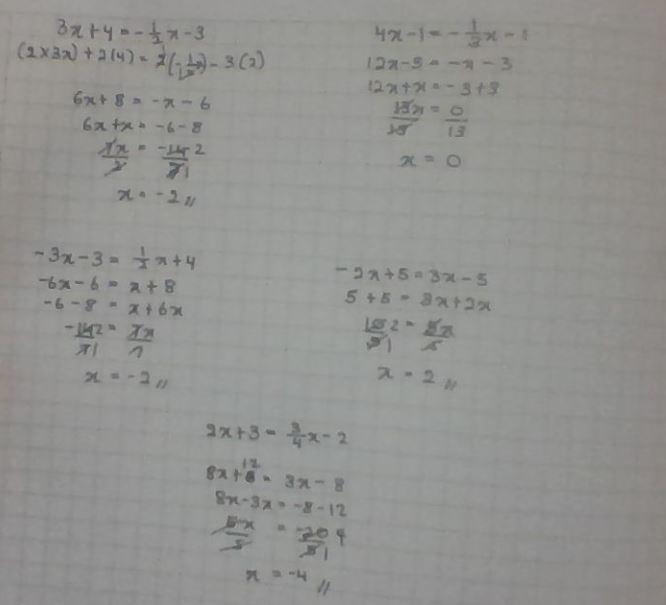 3x+4 = -1/2x-3
(2×3x)+2(4) = 2(-1/2x)-3(2)
6x+8 = -x-6
6x+x = -6-8
7x/7 = -14 2/7 1
x = -2 //
4x-1 = -1/3x-1
12x-3 = -x-3
12x+x = -3+3
13x/13 = 0/13
x = 0
-3x-3 = 1/2x+4
-6x-6 = x+8
-6-8 = x+6x
-14 2/7 1 = 7x/7
x = -2 //
-2x+5 = 3x-5
5+5 = 3x+2x
10 2/5 1 = 5x/5
x = 2 //
2x+3 = 3/4x-2
8x+12 = 3x-8
8x-3x = -8-12
5x/5 = -20 4/5 1
x = -4 //